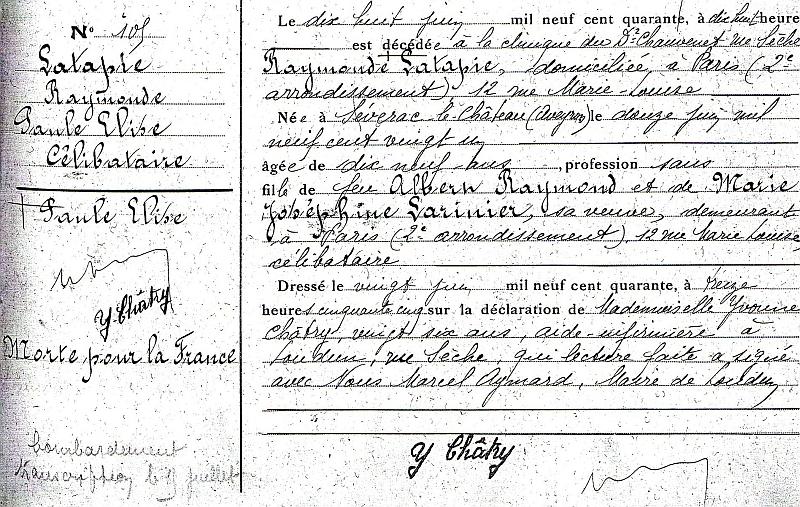 N° 105
Latapie
Raymonde
Paule Elise
Célibataire
† Paule Elise
Y Châtry
Morte pour la France
bombardement
transcription le juillet
Le dix huit juin mil neuf cent quarante, à dix huit heure
est décédée à la clinique du Dr Chauvenet rue Sèche
† Raymonde Latapie, domiciliée, à Paris (2e
arrondissement) 12 rue Marie-Louise
Née à Sévérac-le-Château (Aveyron) le douze juin mil
neuf cent vingt un
âgée de dix neuf ans, profession sans
fille de feu Albern Raymond et de Marie
Joséphine Larinier, sa veuve, demeurant
à Paris (2e arrondissement), 12 rue Marie Louise
célibataire
Dressé le vingt juin mil neuf cent quarante, à treize
heures cinquante cinq sur la déclaration de Mademoiselle Yvonne
Châtry, vingt six ans, aide-infirmière à
Loudun, rue Sèche, qui lecture faite a signé
avec Nous Marcel Aymard, Maire de Loudun
Y Châtry